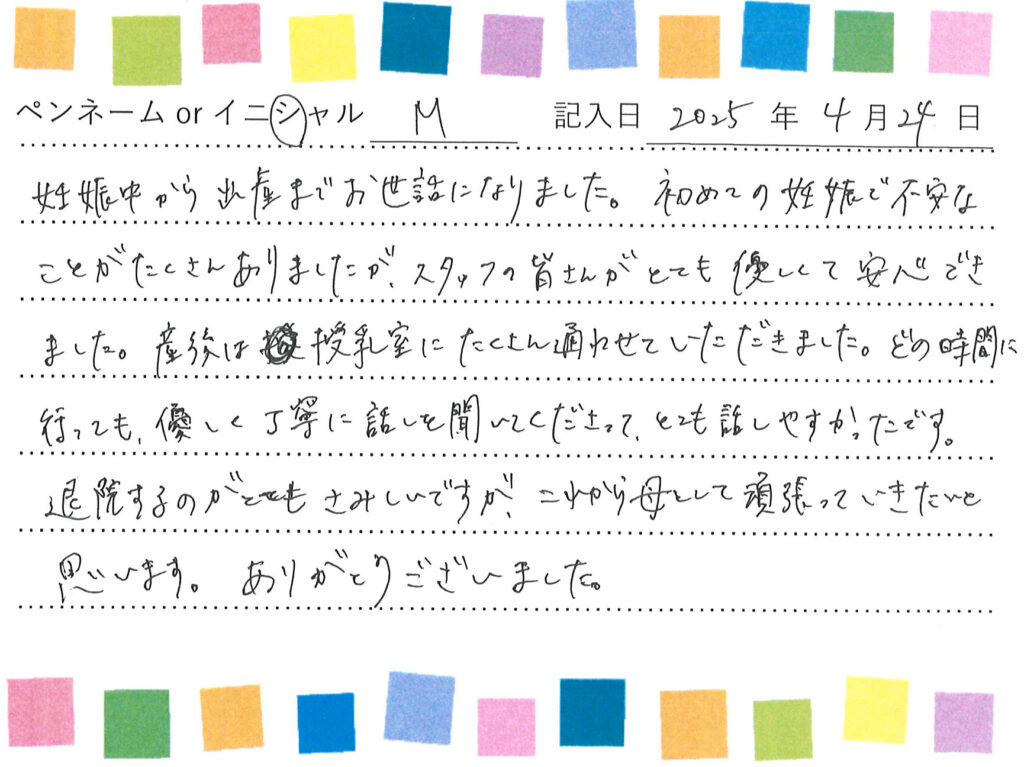 ペンネーム or イニシャル M 記入日 2025 年 4 月 24 日
妊娠中から出産までお世話になりました。初めての妊娠で不安な
ことがたくさんありましたが、スタッフの皆さんがとても優しくて安心でき
ました。産後は授乳室にたくさん通わせていただきました。どの時間に
行っても、優しく丁寧に話しを聞いてくださって、とても話しやすかったです。
退院するのがとてもさみしいですが、これから母として頑張っていきたいと
思います。ありがとうございました。